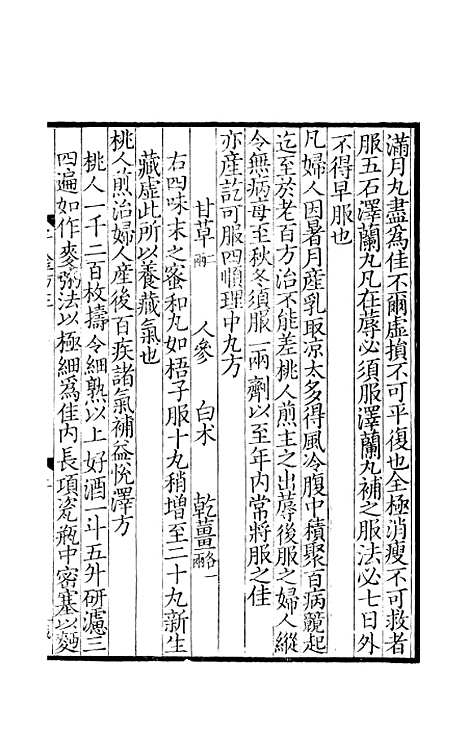 滿月丸盡為佳不爾虛損不可平復也全極消瘦不可救者
服五石澤蘭丸凡在蓐必須服澤蘭丸補之服法必七日外
不得早服也
凡婦人因暑月產乳取凉太多得風冷腹中積聚百病競起
迄至於老百方治不能差桃人煎主之出蓐後服之婦人縱
令無病每至秋冬須服一兩劑以至年內常將服之佳
亦產訖可服四順理中丸方
甘草二兩 人參 白术 乾薑各一兩
右四味末之蜜和丸如梧子服十丸稍增至二十丸新生
藏虛此所以養藏氣也
桃人煎治婦人產後百疾諸氣補益悅澤方
桃人一千二百枚擣令細熟以上好酒一斗五升研濾三
四遍如作麥粥法以極細為佳內長項瓷瓶中密塞以麵